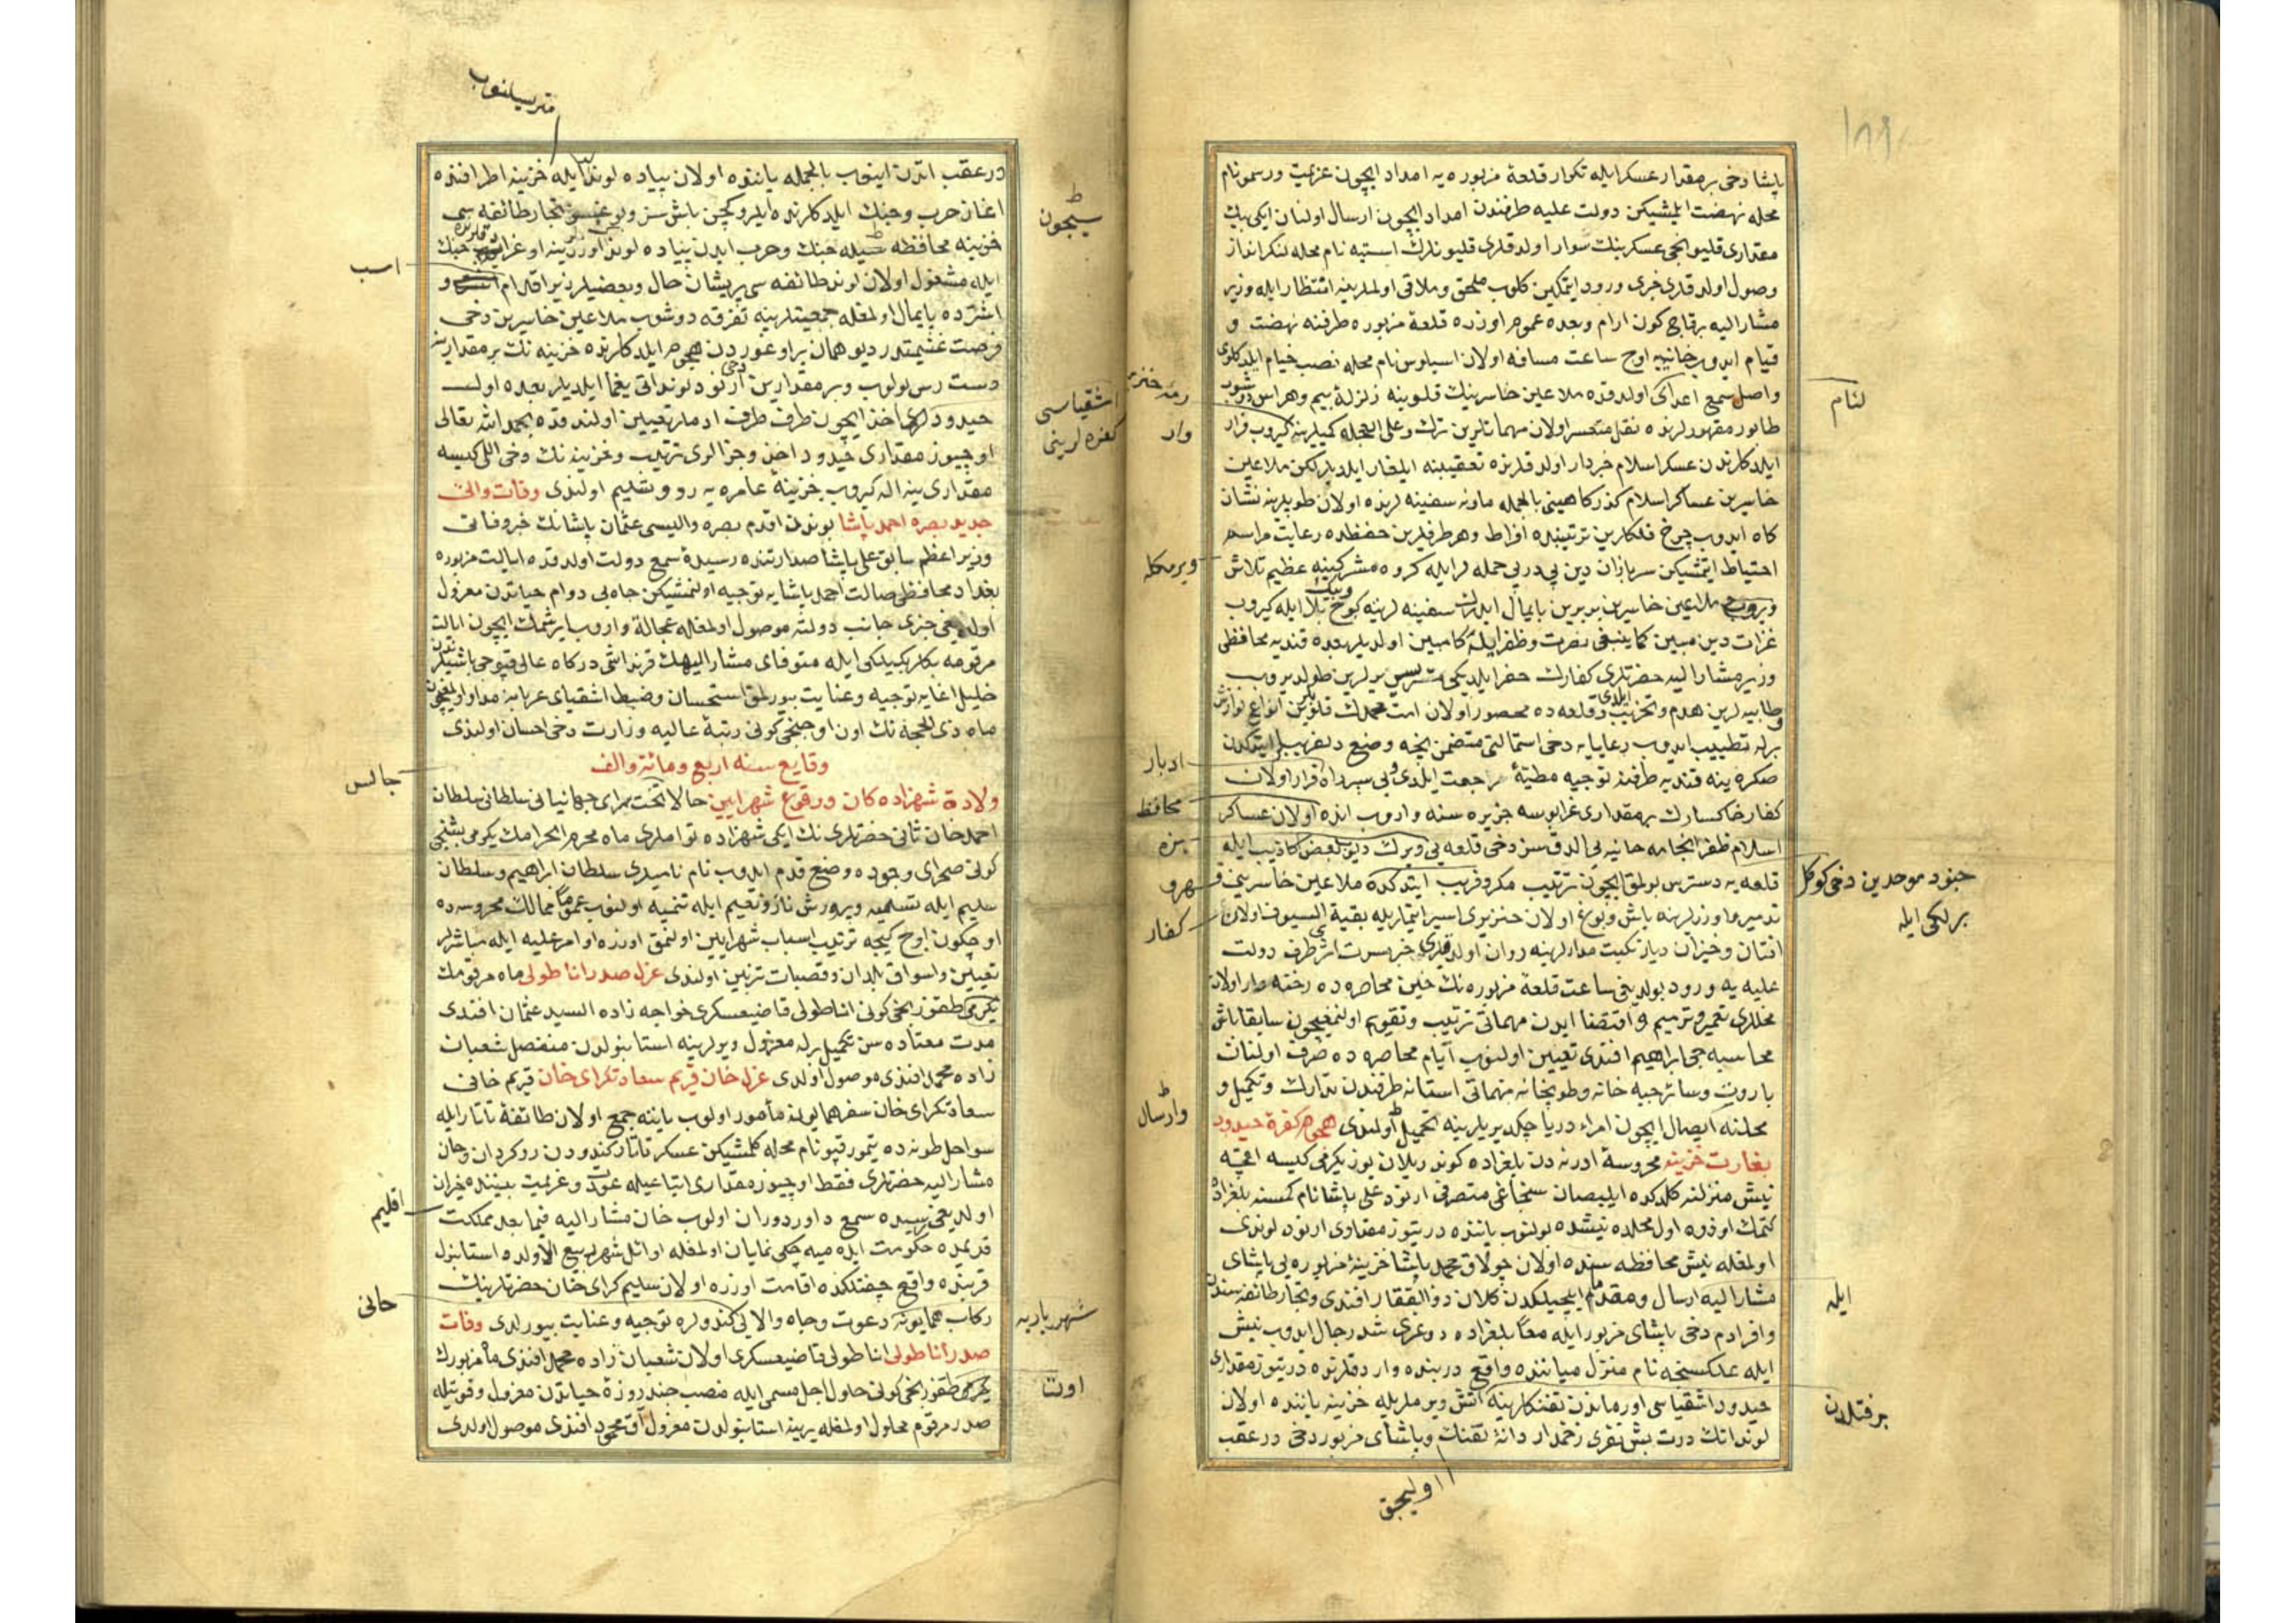 ١٨٩
پاشا دخی بر مقدار عسکر ایله تکرار قلعهٔ مزبوره یه امداد ایچون عزیمت ورسمو نام
محله نهضت ایلمشیکن دولت علیه طرفندن امداد ایچون ارسال اولنان ایکی بیک
مقداری قلیونجی عسکرینک سوار اولدقلری قلیونلرک استیه نام محله لنکرانداز
وصول اولدقلری خبری ورود ایتمکین کلوب ملحق وملاقی اولملرینه انتظار ایله وزیر
مشار الیه برقاچ کون ارام وبعده عموم اوزره قلعهٔ مزبوره طرفنه نهضت و
قیام ایدوب خانیه یه اوچ ساعت مسافه اولان اسپلوس نام محله نصب خیام ایلدکلری
واصل سمع اعدای اولدقده ملاعین خاسرینک قلوبنه زلزلهٔ بیم وهراس دوشوب
طابور مقهورلرنده نقل متعسر اولان مهماتلرین ترک وعلی العجله کمیلرینه کیروب فرار
ایلدکلرندن عسکر اسلام خبردار اولدقلرنده تعقیبنه ایلغار ایلدیلر لکن ملاعین
خاسرین عساکر اسلام کذرکاهینی بالجمله ماونه سفینه لرنده اولان طوپلرینه نشان
کاه ایدوب چرخ فلکلرین ترتیبنده افراط وهر طرفلرین حفظده رعایت مراسم
احتیاط ایتمشیکن سربازان دین پی درپی حمله لر ایله کروه مشرکینه عظیم تلاش
ویروب ملاعین خاسرین بربرین پایمال ایدرک سفینه لرینه کوچ بلا ایله کیروب
غزات دین مبین کما ینبغی نصرت وظفر ایله کامبین اولدیلر بعده قندیه محافظی
وزیر مشار الیه حضرتلری کفارک حفر ایلدیکی متریس یرلرین طولدیروب
وطابیه لرین هدم وتخریب ایلدی وقلعه ده محصور اولان امت محمدک قلوبین انواع نوازش
برله تطییب ایدوب رعایایه دخی استمالتی متضمن پنجه وضع دلفریبلر ایتدکدن
صکره ینه قندیه طرفنه توجیه مطیهٔ مراجعت ایلدی وبی سپر راه فرار اولان
کفار خاکسارک بر مقداری غرابوسه جزیره سنه واروب انده اولان عساکر
اسلام ظفر انجامه خانیه یی الدق سز دخی قلعه یی ویرک دیو بعض اکاذیب ایله
قلعه یه دسترس بولمق ایچون ترتیب مکر وفریب ایتدکده ملاعین خاسرینی
تدمیر ماوزلرینه باش وبوغ اولان خنزیری اسیر ایتملریله بقیة السیوف اولان
افتان وخیزان دیار نکبت مدارلرینه روان اولدقلری خبر مسرت اثر طرف دولت
علیه یه ورود بولدیغی ساعت قلعهٔ مزبوره نک حین محاصره ده رخنه دار اولان
محللری تعمیر وترمیم واقتضا ایدن مهماتی ترتیب وتقویم اولنمغیچون سابقا باش
محاسبه جی ابراهیم افندی تعیین اولنوب ایام محاصره ده صرف اولنان
باروت وسائر جبه خانه وطوپخانه مهماتی استانه طرفندن تدارک وتکمیل و
محلنه ایصال ایچون امراء دریا چکدیریلرینه تحمیل اولندی هجوم کفرهٔ حیدود
بغارت خزینه محروسهٔ ادرنه دن بلغراده کوندریلان یوز یکرمی کیسه اقچه
نیش منزلنه کلدکده ایلبصان سنجاغی متصرفی ارنود علی پاشا نام کمسنه بلغراده
کتمک اوزره اول محلده نیشده بولنوب یاننده درتیوز مقداری ارنود لوندی
اولمغله نیش محافظه سنده اولان چولاق محمد پاشا خزینهٔ مزبوره یی پاشای
مشار الیه ارسال ومقدم ایلچیلکدن کلان ذو الفقار افندی وتجار طائفه سندن
وافرادم دخی پاشای مزبور ایله معا بلغراده دوغری شد رحال ایدوب نیش
ایله علکسنجه نام منزل میاننده واقع دربنده واردقلرنده درتیوز مقداری
حیدود اشقیاسی اورماندن تفنکلرینه اتش ویرملریله خزینه یاننده اولان
لونداتک درت بش نفری زخمدار دانهٔ تفنک وپاشای مزبور دخی در عقب
لئام
رمه خنزیر
وار
ویرمکله
ادبار
محافظ
بزه
جنود موحدین دخی کوکل
برلکی ایله
قهر و
کفار
وارسال
ایله
برفتلردن
اولیجق
متریسلنوب
در عقب اتدن اینوب بالجمله یاننده اولان پیاده لوند ایله خزینه اطرافنده
اغاز حرب وجنک ایلدکلرنده ایلرو کچن باش سز وبوغسز تجار طائفه سی
خزینه محافظه سیله جنک وحرب ایدن پیاده لوند اوزرینه اوغرایوب جنک
ایله مشغول اولان لوند طائفه سی پریشان حال وبعضیلر زیر اقدام و
اشترده پایمال اولمغله جمعیتلرینه تفرقه دوشوب ملاعین خاسرین دخی
فرصت غنیمتدر دیو همان بر اوغوردن هجوم ایلدکلرنده خزینه نک بر مقدارینه
دست رس بولوب وبر مقدارین دخی ارنود لونداتی یغما ایلدیلر بعده اول
حیدودلری اخذ ایچون طرف طرف ادملر تعیین اولندقده بحمد الله تعالی
اوچیوز مقداری حیدود اخذ وجزالری ترتیب وخزینه نک دخی اللی کیسه
مقداری ینه اله کیروب خزینهٔ عامره یه رد وتسلیم اولندی وفات والی
جدید بصره احمد پاشا بوندن اقدم بصره والیسی عثمان پاشانک خبر وفاتی
وزیر اعظم سابق علی پاشا صدارتنده رسیدهٔ سمع دولت اولدقده ایالت مزبوره
بغداد محافظی صالت احمد پاشایه توجیه اولنمشیکن جاه بی دوام حیاتدن معزول
اولدیغی خبری جانب دولته موصول اولمغله عجالة واروب ایرشمک ایچون ایالت
مرقومه بکلربکیلکی ایله متوفای مشار الیهک قرنداشی درکاه عالی قپوجی باشیلرندن
خلیل اغایه توجیه وعنایت بیورلمق استحسان وضبط اشقیای عربانه مدار اولمغیچون
ماه ذی الحجه نک اون اوچنجی کونی رتبهٔ عالیه وزارت دخی احسان اولندی
وقایع سنه اربع ومائة والف
ولادة شهزاده کان ووقوع شهرایین حالا تخت برای جهانبانی سلطانی سلطان
احمد خان ثانی حضرتلری نک ایکی شهزاده توأملری ماه محرم الحرامک یکرمی بشنجی
کونی صحرای وجوده وضع قدم ایدوب نام نامیلری سلطان ابراهیم وسلطان
سلیم ایله تسمیه وپرورش ناز ونعیم ایله تنمیه اولنوب عموما ممالک محروسه ده
اوچکون اوچ کیجه ترتیب اسباب شهرایین اولنمق اوزره اوامر علیه ایله مباشرلر
تعیین واسواق بلدان وقصبات تزیین اولندی عزل صدر اناطولی ماه مرقومک
یکرمی طقوزنجی کونی اناطولی قاضیعسکری خواجه زاده السید عثمان افندی
مدت معتاده سن تکمیل برله معزول ویرلرینه استانبولدن منفصل شعبان
زاده محمد افندی موصول اولدی عزل خان قریم سعادتکرای خان قریم خانی
سعادتکرای خان سفر همایونه مأمور اولوب یاننه جمع اولان طائفهٔ تاتار ایله
سواحل طونه ده تیمورقپو نام محله کلمشیکن عسکر تاتار کندودن روکردان وخان
مشار الیه حضرتلری فقط اوچیوز مقداری اتباعیله عودت وعزیمت بیننده حیران
اولدیغی رسیده سمع داور دوران اولوب خان مشار الیه فیما بعد مملکت
قدیمده حکومت ایده میه جکی نمایان اولمغله اوائل شهر ربیع الاولده استانبول
قربنده واقع چفتلکنده اقامت اوزره اولان سلیم کرای خان حضرتلرینک
رکاب همایونه دعوت وجاه والایی کندولره توجیه وعنایت بیورلدی وفات
صدر اناطولی اناطولی قاضیعسکری اولان شعبان زاده محمد افندی ماه مزبورک
یکرمی طقوزنجی کونی حلول اجل مسمی ایله منصب چند روزهٔ حیاتدن معزول وفوتیله
صدر مرقوم محلول اولمغله یرینه استانبولدن معزول اق محمود افندی موصول اولدی
سیچون
اسب
اشقیاسی
کفره لرینی
جالس
اقلیم
خانی
شهریاریه
اوننا